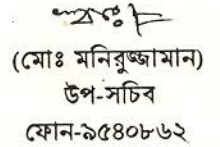 (মোঃ মনিরুজ্জামান)
উপ-সচিব
ফোন-৯৫৪০৮৬২